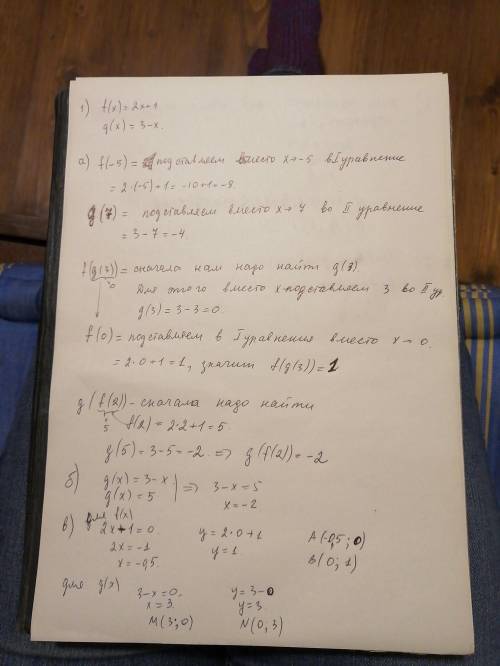 1) f(x) = 2x+1
g(x) = 3-x.
а) f(-5) = подставляем вместо x → -5 в I уравнение
= 2·(-5)+1 = -10+1 = -9.
g(7) = подставляем вместо x → 7 во II уравнение
= 3-7 = -4.
f(g(3)) = сначала нам надо найти g(3).
0
Для этого вместо x подставляем 3 во II ур.
g(3) = 3-3 = 0.
f(0) = подставляем в I уравнения вместо x → 0.
= 2·0+1 = 1, значит f(g(3)) = 1
g(f(2)) - сначала надо найти
5 f(2) = 2·2+1 = 5.
g(5) = 3-5 = -2. => g(f(2)) = -2
б) g(x) = 3-x
g(x) = 5 => 3-x = 5
x = -2
в) для f(x)
2x+1 = 0. y = 2·0+1 A(-0,5; 0)
2x = -1 y = 1. B(0; 1)
x = -0,5
для g(x) 3-x = 0. y = 3-0
x = 3. y = 3.
M(3; 0) N(0, 3)